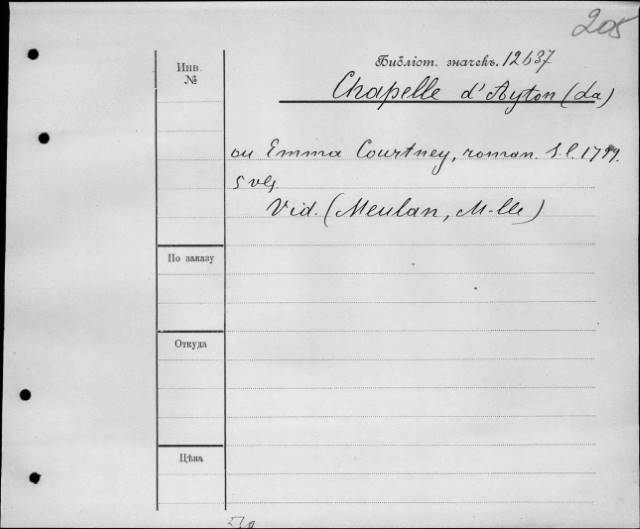 205
Инв.
№
Библіот. значекъ. 12637
Chapelle d'Ayton (La)
ou Emma Courtney, roman. S.l. 1799.
5 vls.
Vid. (Meulan, M-lle)
По заказу
Откуда
Цѣна